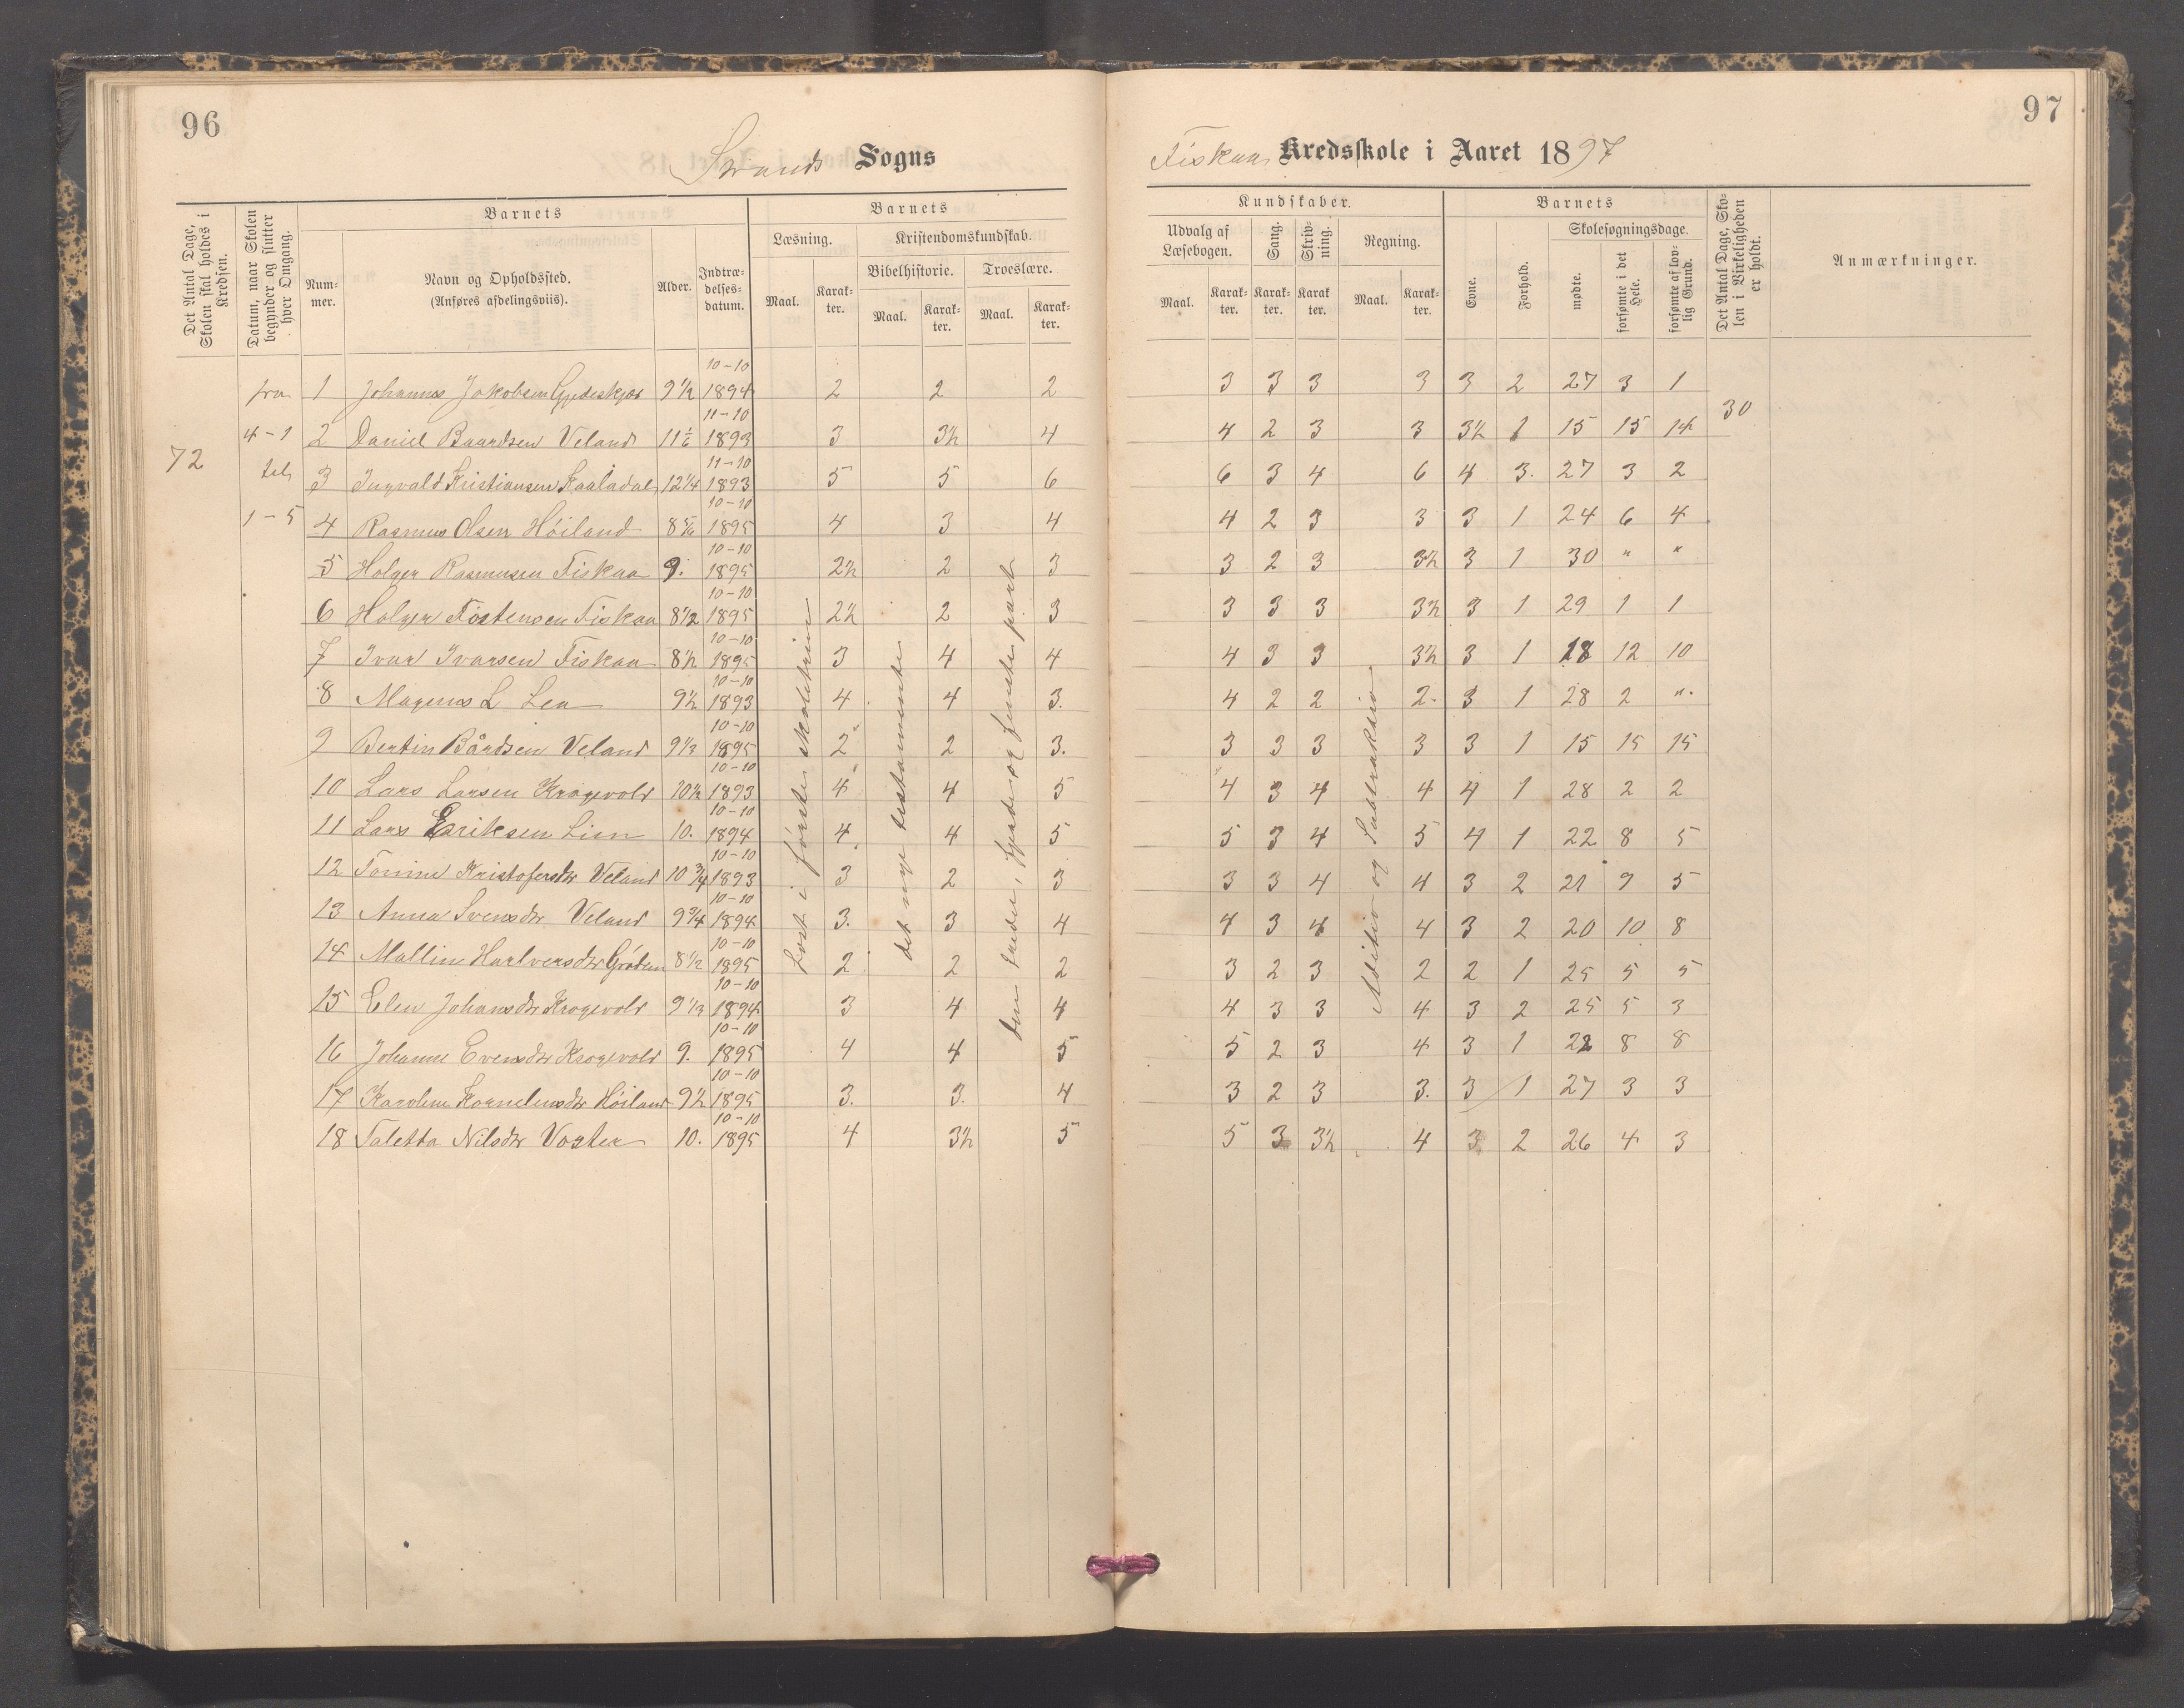 96
97
Strands Sogns
Fiskaa Kredsskole i Aaret 1897
Det Antal Dage, Skolen skal holdes i Kredsen.
Datum, naar Skolen begynder og slutter hver Omgang.
Barnets
Num-mer.
Navn og Opholdssted.
(Anføres afdelingsviis).
Alder.
Indtræ-delses-datum.
Barnets
Læsning.
Kristendomskundskab.
Bibelhistorie.
Troeslære.
Maal.
Karak-ter.
Maal.
Karak-ter.
Maal.
Karak-ter.
Kundskaber.
Udvalg af Læsebogen.
Sang.
Skriv-ning.
Regning.
Maal.
Karak-ter.
Karak-ter.
Karak-ter.
Maal.
Karak-ter.
Barnets
Evne.
Forhold.
Skolesøgningsdage.
mødte.
forsømte i det Hele.
forsømte af lov-lig Grund.
Det Antal Dage, Sko-len i Virkeligheden er holdt.
Anmærkninger.
72
fra
4-1
til
1-5
30
1 Johannes Jakobsen 9 1/2 10-10 1894 2 2 2 3 3 3 3 3 2 27 3 1
2 Daniel Baardsen Veland 11 1/6 11-10 1893 3 3½ 4 4 2 3 3 3½ 1 15 15 14
3 Ingvald Kristiansen Kaaladal 12 1/4 11-10 1893 5 5 6 6 3 4 6 4 3. 27 3 2
4 Rasmus Olsen Höiland 8 5/6 10-10 1895 4 3 4 4 2 3 3 3 1 24 6 4
5 Holger Rasmussen Fiskaa 9. 10-10 1895 2½ 2 3 3 2 3 3½ 3 1 30 " "
6 Holger Tostensen Fiskaa 8 1/2 10-10 1895 2½ 2 3 3 3 3 3½ 3 1 29 1 1
7 Ivar Ivarsen Fiskaa 8½ 10-10 1895 3 4 4 4 3 3 3½ 3 1 18 12 10
8 Magnus L Lea 9½ 10-10 1893 4 4 3. 4 2 2 2. 3 1 28 2 ".
9 Bertin Bårdsen Veland 9 1/3 10-10 1895 2 2 3. 3 3 3 3 3 1 15 15 15
10 Lars Larsen Krogevold 10½ 10-10 1893 4 4 5 4 3 4 4 4 1 28 2 2
11 Lars Eriksen Lien 10. 10-10 1894 4 4 5 5 3 4 5 4 1 22 8 5
12 Tomine Kristofersdtr Veland 10 3/4 10-10 1893 3 2 3 3 3 4 4 3 2 21 9 5
13 Anna Svensdtr Veland 9 3/4 10-10 1894 3. 3 4 4 3 4 4 3 2 20 10 8
14 Mallin Hartversdtr 8 1/2 10-10 1895 2 2 2 3 2 3 2 2 1 25 5 5
15 Elen Johansdtr Krogevold 9 1/3 10-10 1894 3 4 4 4 3 3 4 3 2 25 5 3
16 Johanne Evensdtr Krogevold 9. 10-10 1895 4 4 5 5 2 3 4 3 1 22 8 8
17 Karoline Kornelius­dtr Höiland 9½ 10-10 1895 3. 3. 4 3 2 3 3. 3 1 27 3 3
18 Taletta Nilsdtr Voster 10. 10-10 1895 4 3½ 5 5 3 3½ 4 3 2 26 4 3
Læst i første skoletrin
det nye testamente
den tredie, fjerde og femte part
Adition og Subtraktion